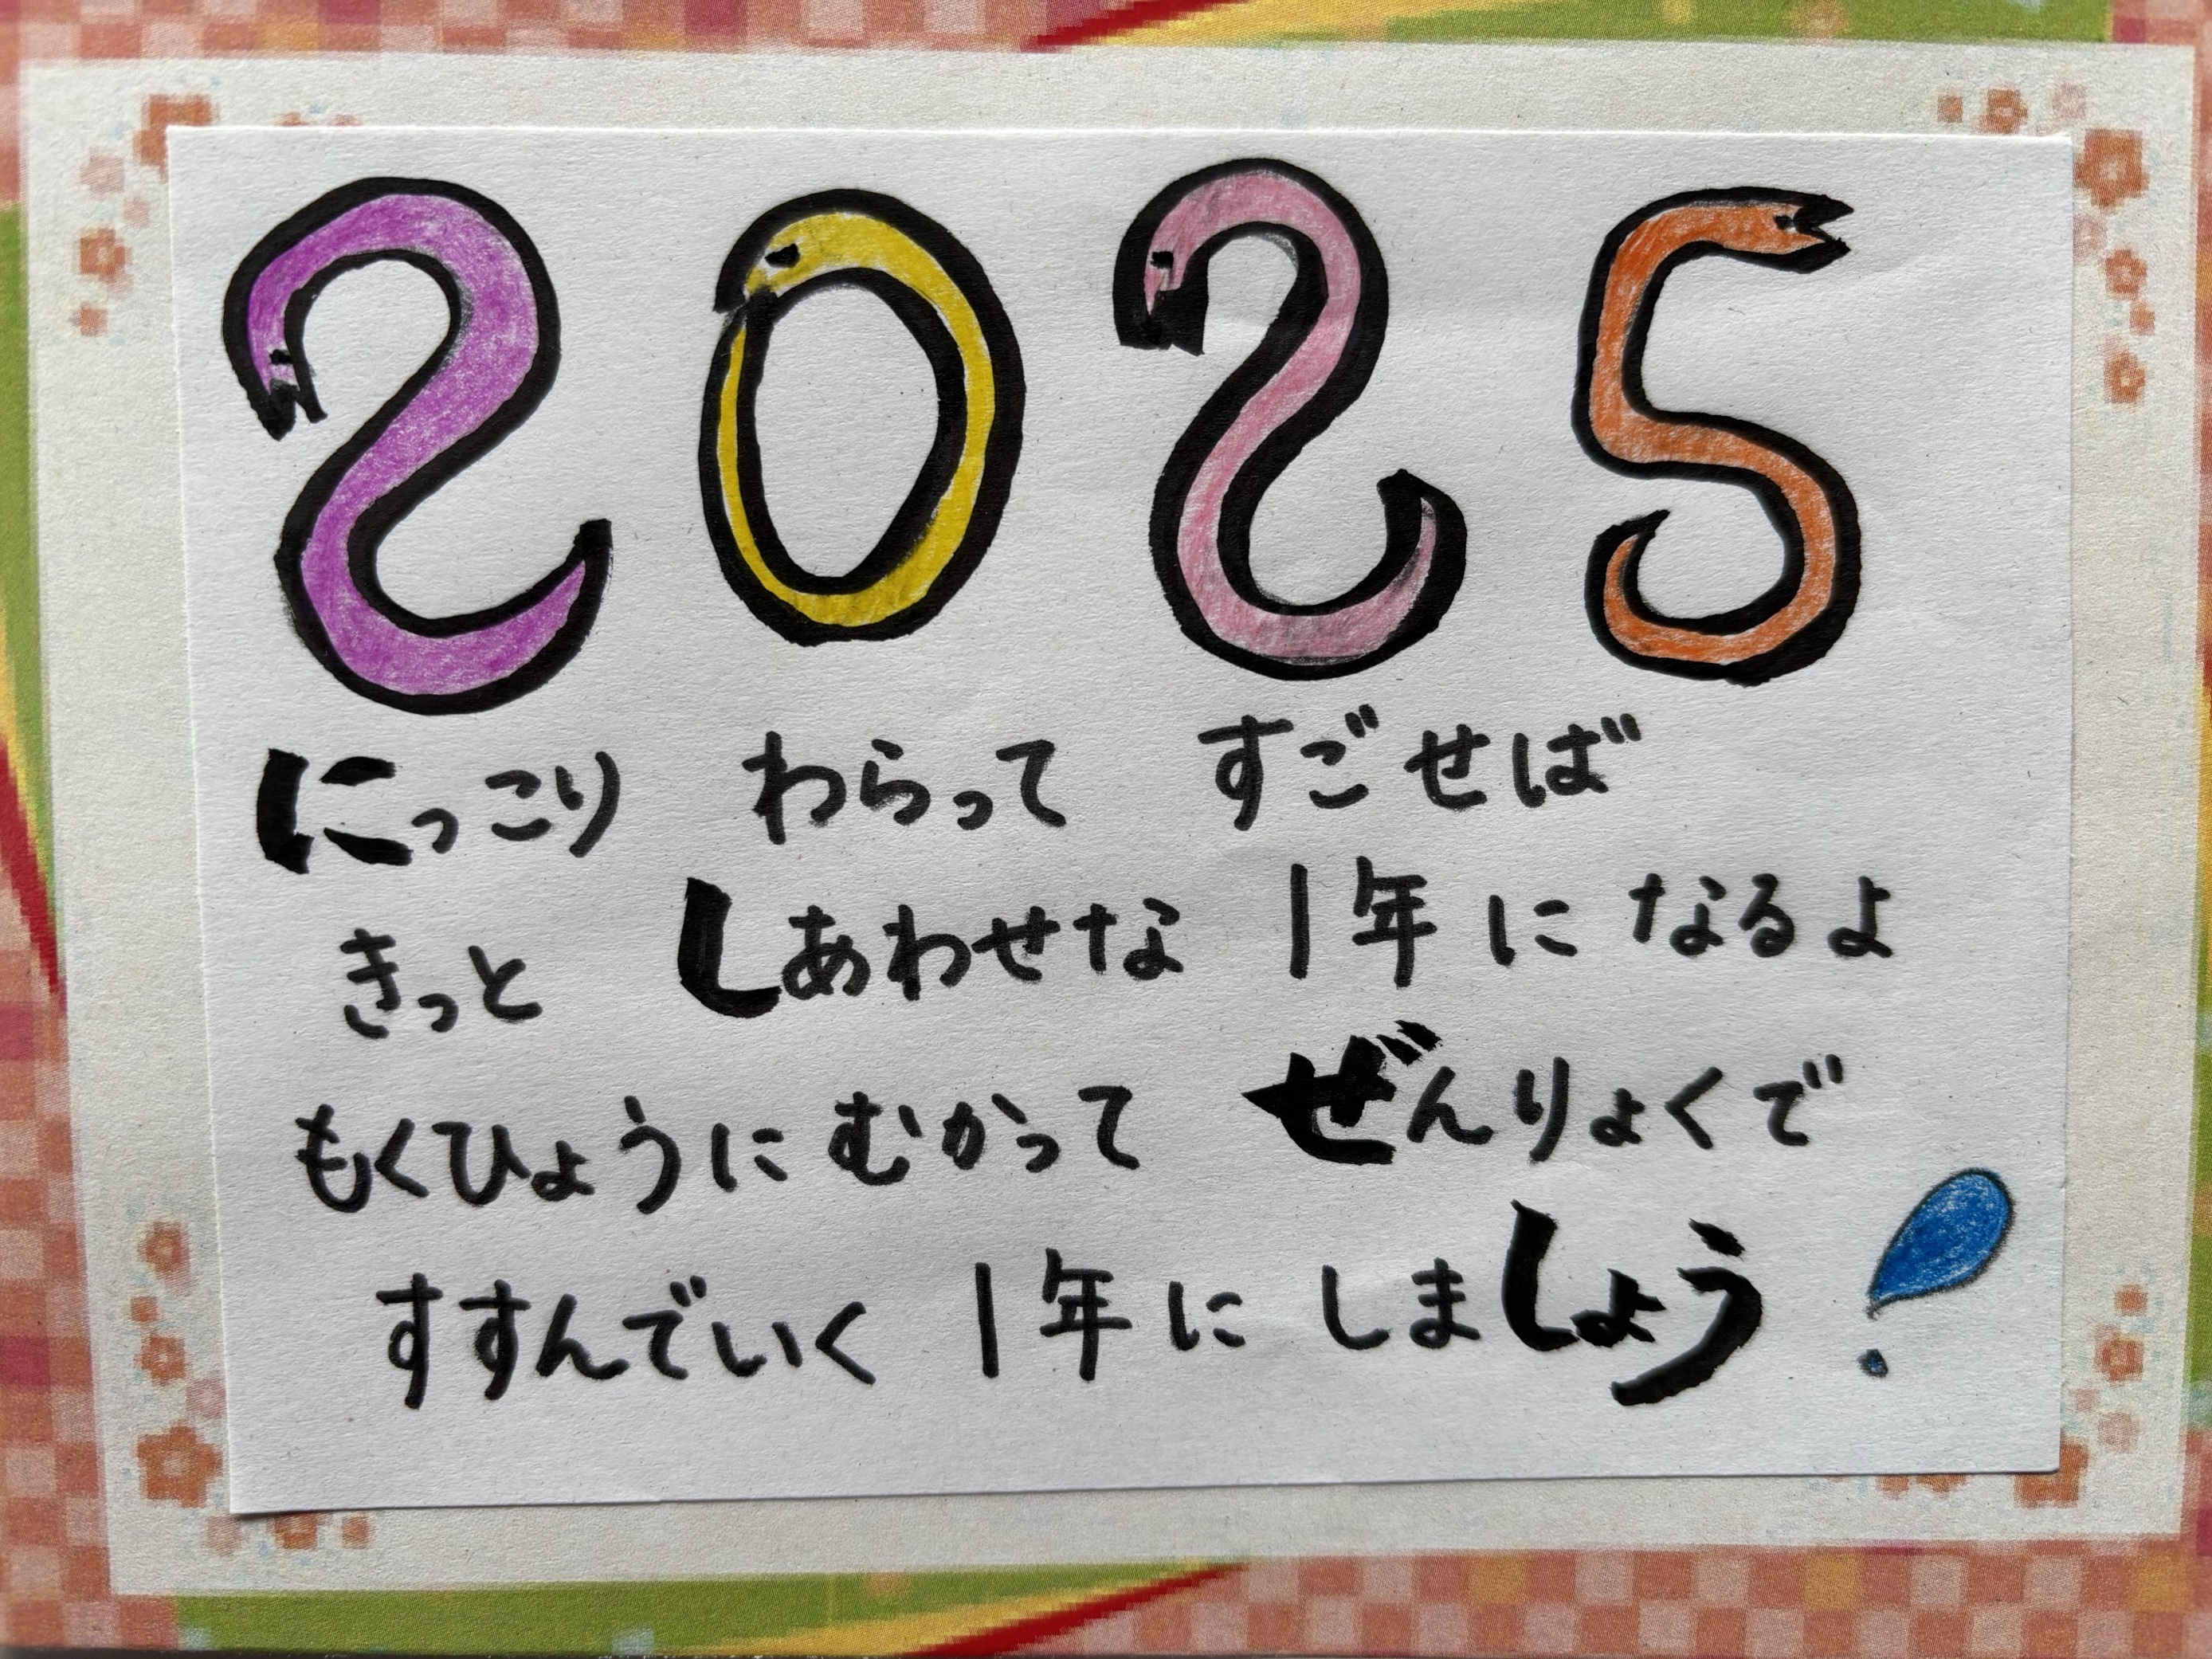 2025
にっこり わらって すごせば
きっと しあわせな 1年に なるよ
もくひょうに むかって ぜんりょくで
すすんでいく 1年に しましょう!